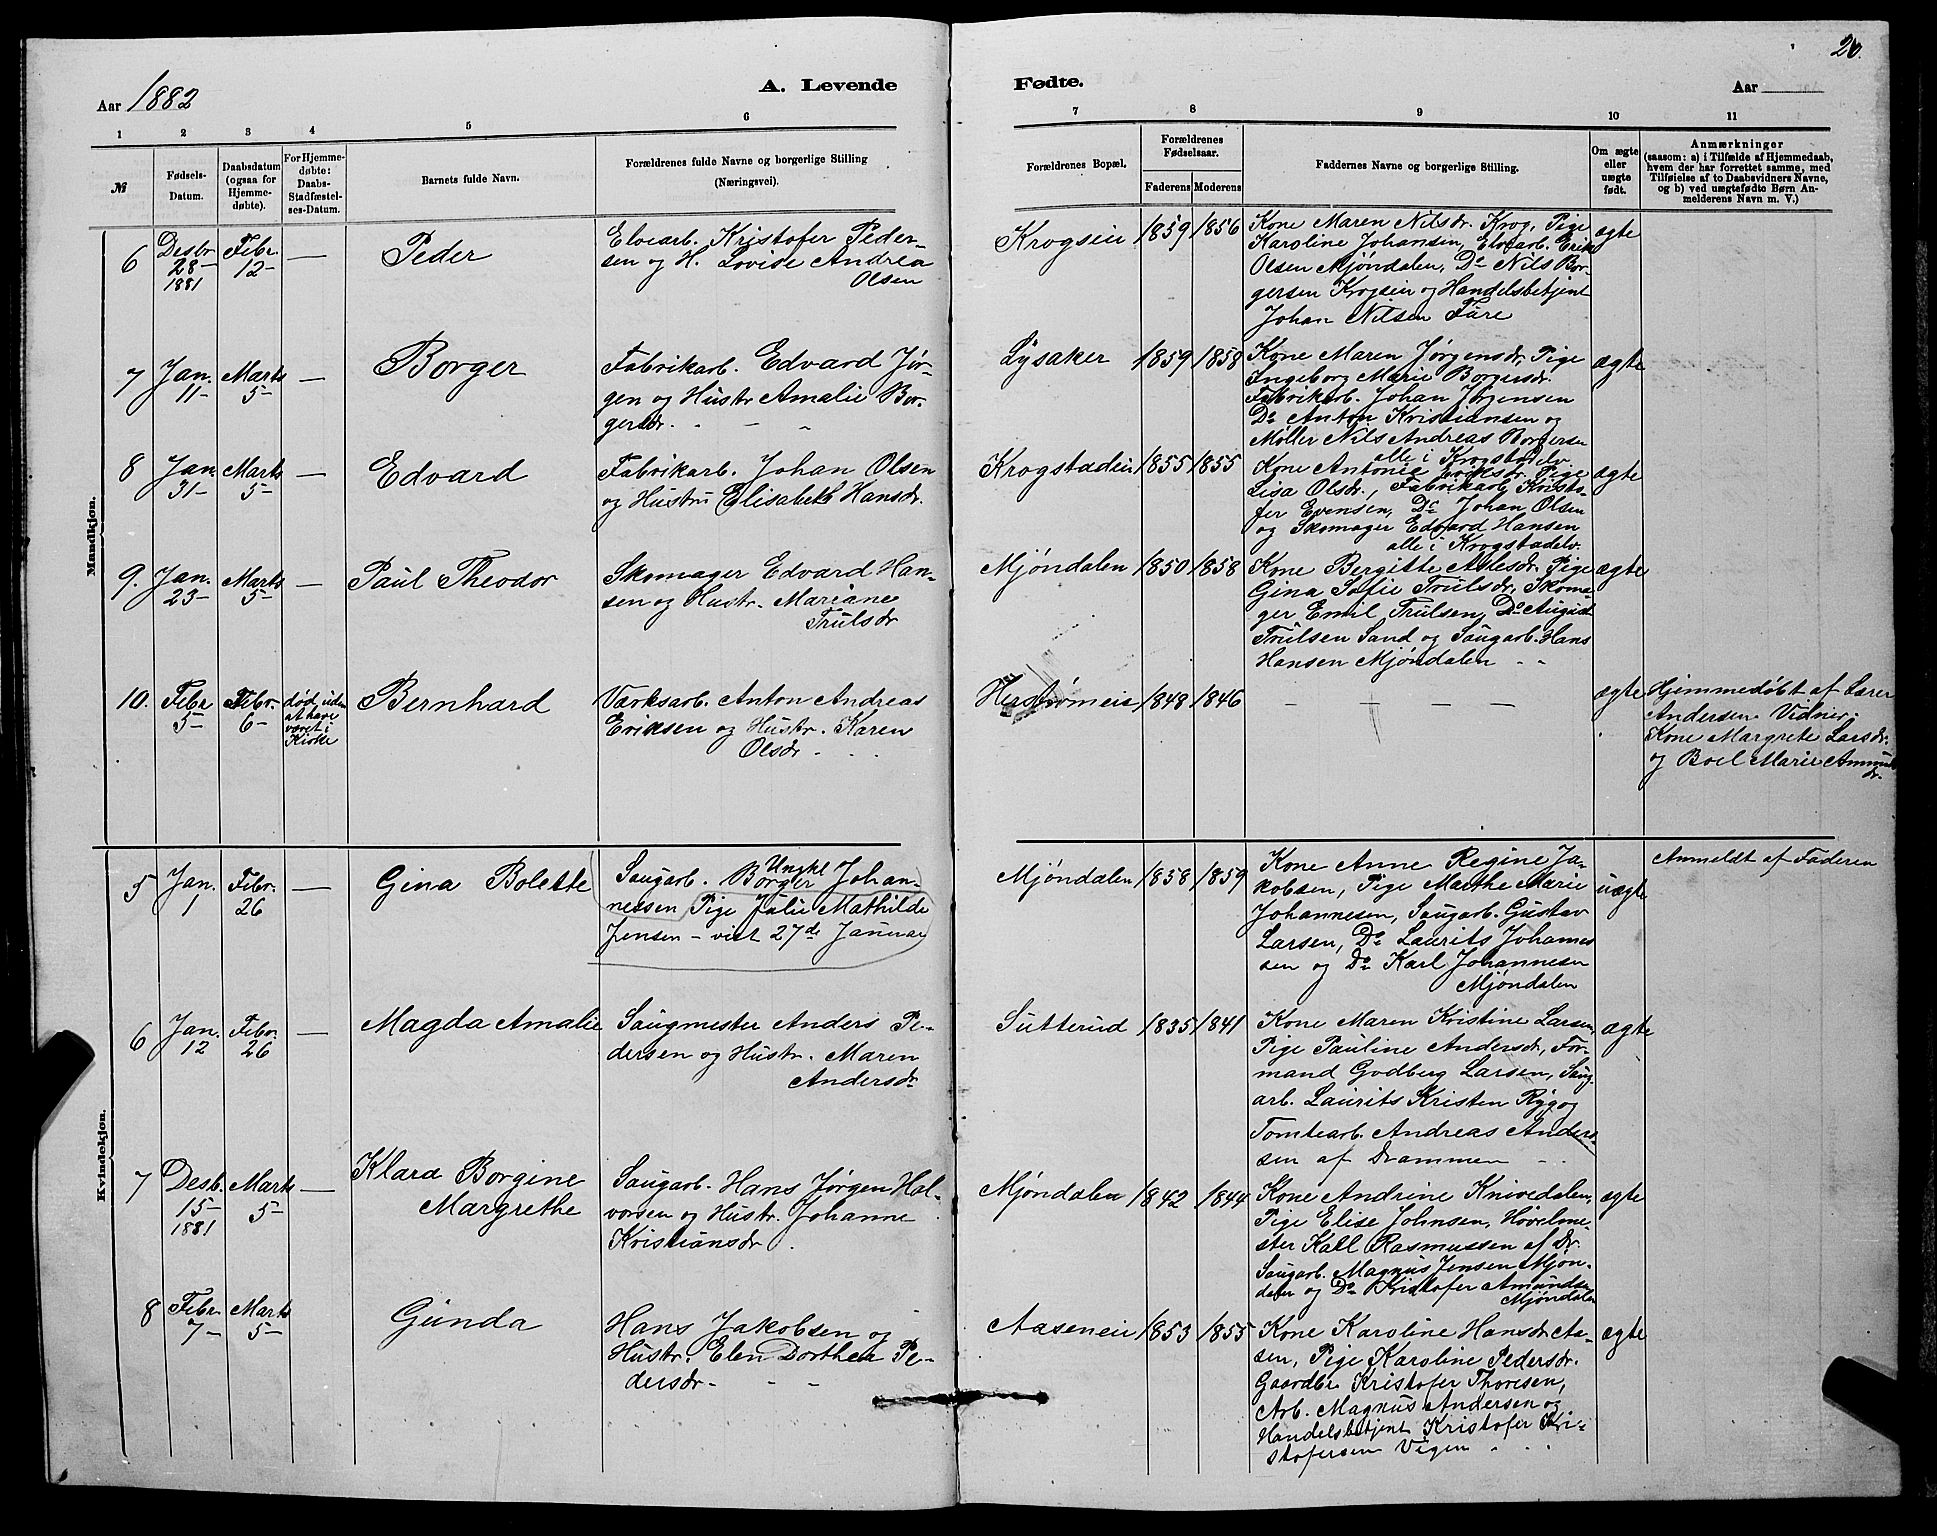 20.
Aar 1882
A. Levende
Fødte.
Aar
1 2 3 4 5 6 7 8 9 10 11
№
Fødsels-
Datum.
Daabsdatum
(ogsaa for
Hjemme-
døbte).
For Hjemme-
døbte:
Daabs-
Stadfæstel-
ses-Datum.
Barnets fulde Navn.
Forældrenes fulde Navne og borgerlige Stilling
(Næringsvei).
Forældrenes Bopæl.
Forældrenes
Fødselsaar.
Faderens Moderens
Faddernes Navne og borgerlige Stilling.
Om ægte
eller
uægte
født.
Anmærkninger
(saasom: a) i Tilfælde af Hjemmedaab,
hvem der har forrettet samme, med
Tilføielse af to Daabsvidners Navne,
og b) ved uægtefødte Børn An-
melderens Navn m. V.)
Mandkjøn.
6
Desbr
28-
1881
Febr.
12-
—
Peder
Elvearb. Kristofer Peder-
sen og H. Lovise Andrea
Olsen
Krogseie
1859 1856
Kone Maren Nilsdr. Krog, Pige
Karoline Johansen, Elvearb. Erik
Olsen Mjøndalen, Do Nils Bor-
gersen Krogseie og Handelsbetjent
Johan Nilsen Fure
ægte
7
Jan.
11-
Marts
5-
—
Borger
Fabrikarb. Edvard Jør-
gen og Hustr Amalie Bor-
gersdr.
Lysaker
1859 1858
Kone Maren Jørgensdr, Pige
Ingeborg Marie Borgersdr.
Fabrikarb. Johan Jørgensen
Do Anton Kristiansen og
Møller Nils Andreas Borgersen
alle i Krogstadelv
ægte
8
Jan.
31-
Marts
5-
—
Edvard
Fabrikarb. Johan Olsen
og Hustru Elisabeth Hansdr.
Krogstadeie
1855 1855
Kone Antonie Eriksdr. Pige
Lisa Olsdr., Fabrikarb. Kristo-
fer Evensen, Do Johan Olsen
og Skomager Edvard Hansen
alle i Krogstadelv.
ægte
9.
Jan.
23-
Marts
5-
—
Paul Theodor
Skomager Edvard Han-
sen og Hustr. Mariane
Trulsdr
Mjøndalen
1850 1858
Kone Bergitte Aslesdr. Pige
Gina Sofie Trulsdr, Skoma-
ger Emil Trulsen, Do August
Trulsen Sand og Saugarb. Hans
Hansen Mjøndalen
ægte
10.
Febr
5-
Febr.
6-
død uden
at have
været i
Kirke
Bernhard
Værksarb. Anton Andreas
Eriksen og Hustr. Karen
Olsdr
1848 1846
— — — — —
ægte
Hjemmedøbt af Lærer
Andersen. Vidner:
Kone Margrete Larsdr.
og Boel Marie Amunds
dr.
Kvindekjøn.
5
Jan.
1
Febr.
26
—
Gina Bolette
Ungkl
Saugarb. Borger Johan-
nessen Pige Julie Mathilde
Jensen - viet 27de Januar
Mjøndalen
1858 1859
Kone Anne Regine Ja-
kobsen, Pige Marthe Marie
Johannesen, Saugarb. Gustav
Larsen, Do Laurits Johannes
sen og Do Karl Johannesen
Mjøndalen
uægte
Anmeldt af Faderen
6
Jan.
12
Febr.
26
—
Magda Amalie
Saugmester Anders Pe-
dersen og Hustr. Maren
Andersdr
Sutterud
1835 1841
Kone Maren Kristine Larsen,
Pige Pauline Andersdr., For-
mand Godberg Larsen, Saug-
arb. Laurits Kristen Ryg og
Tomtearb. Andreas Ander-
sen af Drammen
ægte
7
Desb.
15-
1881
Marts
5-
—
Klara Borgine
Margrethe
Saugarb. Hans Jørgen Hal-
vorsen og Hustr. Johanne
Kristiansdr.
Mjøndalen
1842 1844
Kone Andrine Knivedalen,
Pige Elise Johnsen, Høvelme-
ster Kall Rasmussen af Dr.
Saugarb. Magnus Jensen Mjøn-
dalen og Do Kristofer Amundsen
Mjøndalen
ægte
8
Febr.
7-
Marts
5-
Gunda
Hans Jakobsen og
Hustr. Elen Dorthea Pe-
dersdr-
Aaseneie
1853 1855
Kone Karoline Hansdr. Aa-
sen, Pige Karoline Pedersdr.
Gaardbr. Kristofer Thoresen,
Arb. Magnus Andersen og
Handelsbetjent Kristofer Kri-
stofersen Vigen
ægte